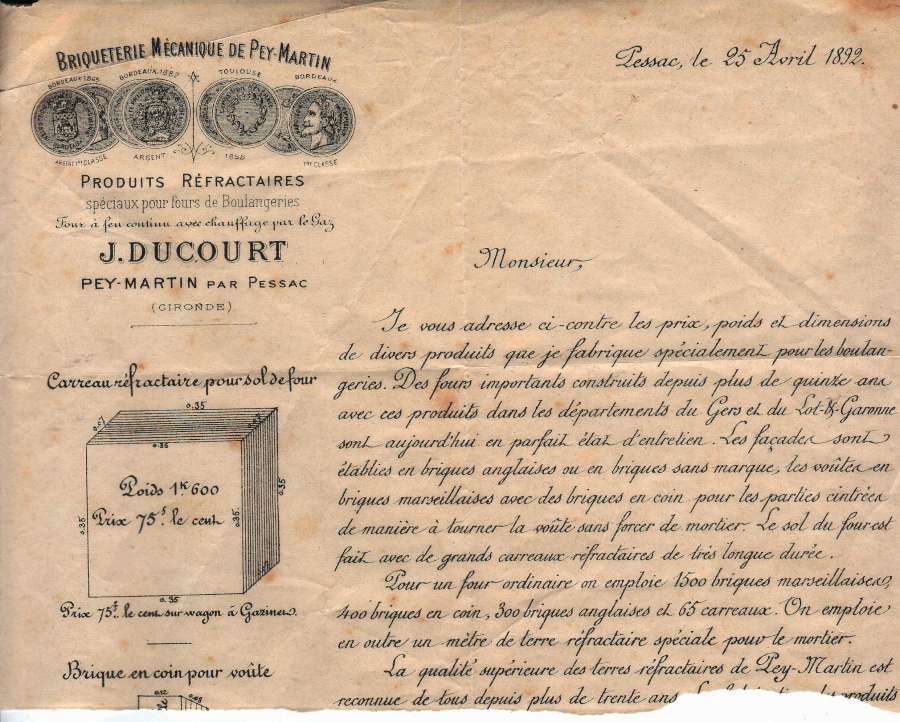 BRIQUETERIE MÉCANIQUE DE PEY-MARTIN
BORDEAUX 1865 BORDEAUX. 1882 TOULOUSE BORDEAUX
ARGENT 1ère CLASSE ARGENT 1858 1ère CLASSE
PRODUITS RÉFRACTAIRES
spéciaux pour fours de Boulangeries
Four à feu continu avec chauffage par le Gaz
J. DUCOURT
PEY-MARTIN PAR PESSAC
(GIRONDE)
Carreau réfractaire pour sol de four
0.35
0.07 0.07
0.35
Poids 1K 600
Prix 75f le cent
0.35 0.35 0.35
0.35
Prix 75f. le cent sur wagon à Gazinet.
Brique en coin pour voûte
0.12
Pessac, le 25 Avril 1892.
Monsieur,
Je vous adresse ci-contre les prix, poids et dimensions
de divers produits que je fabrique spécialement pour les boulan-
geries. Des fours importants construits depuis plus de quinze ans
avec ces produits dans les départements du Gers et du Lot-&-Garonne
sont aujourd'hui en parfait état d'entretien. Les façades sont
établies en briques anglaises ou en briques sans marque, les voûtes en
briques marseillaises avec des briques en coin pour les parties cintrées
de manière à tourner la voûte sans forcer de mortier. Le sol du four est
fait avec de grands carreaux réfractaires de très longue durée.
Pour un four ordinaire on emploie 1500 briques marseillaises,
400 briques en coin, 300 briques anglaises et 65 carreaux. On emploie
en outre un mètre de terre réfractaire spéciale pour le mortier.
La qualité supérieure des terres réfractaires de Pey-Martin est
reconnue de tous depuis plus de trente ans produits